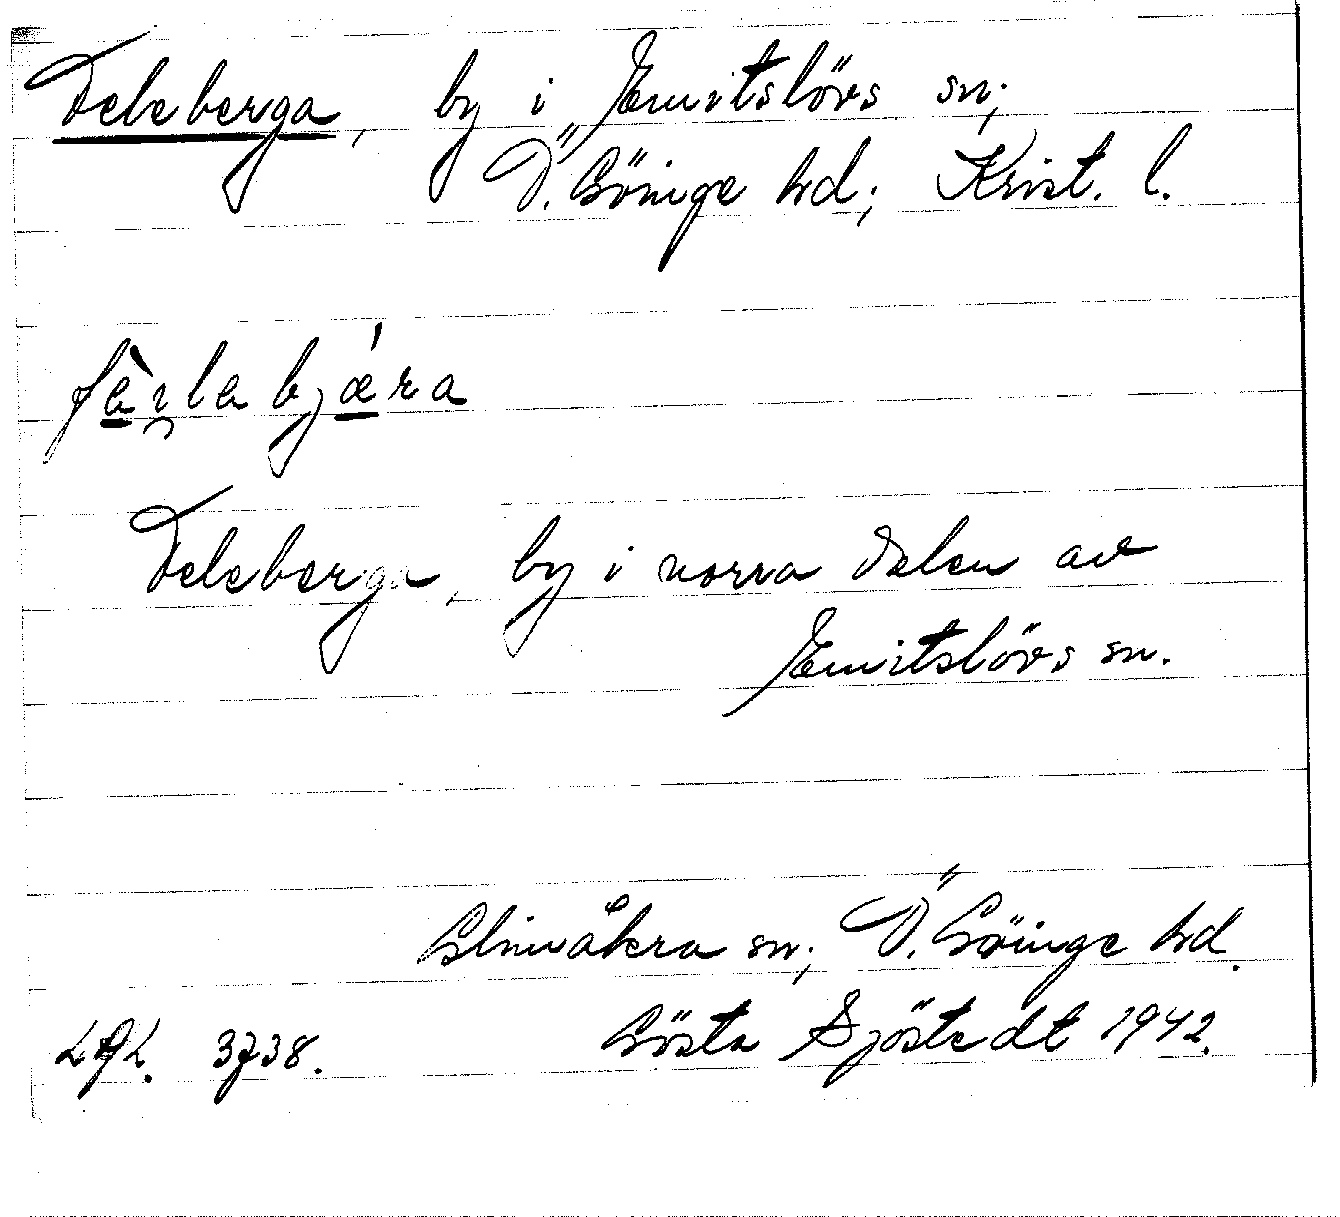 Feleberga, by i Emitslövs sn;
Ö. Göinge hd; Krist. l.
fè̱i̯la bjǽ̱ra
Feleberga, by i norra delen av
Emitslövs sn.
Glimåkra sn; Ö. Göinge hd.
Gösta Sjöstedt 1942.
LAL. 3738.